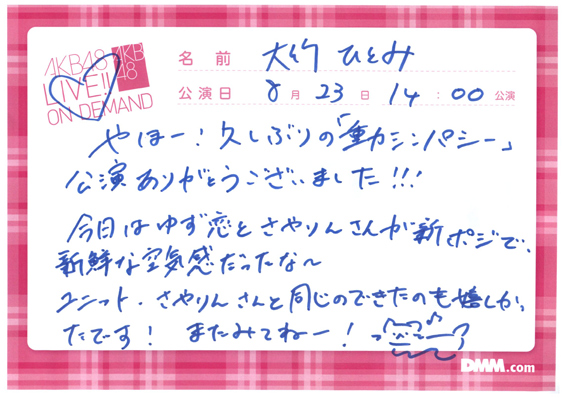 AKB48
LIVE!!
ON DEMAND
AKB
48
名前 大竹 ひとみ
公演日 8月23日 14:00公演
やほー！久しぶりの「重力シンパシー」
公演ありがとうございました!!!
今日はゆず恋とさやりんさんが新ポジで、
新鮮な空気感だったな〜
ユニット、さやりんさんと同じのできたのも嬉しかっ
たです！ またみてねー！
DMM.com